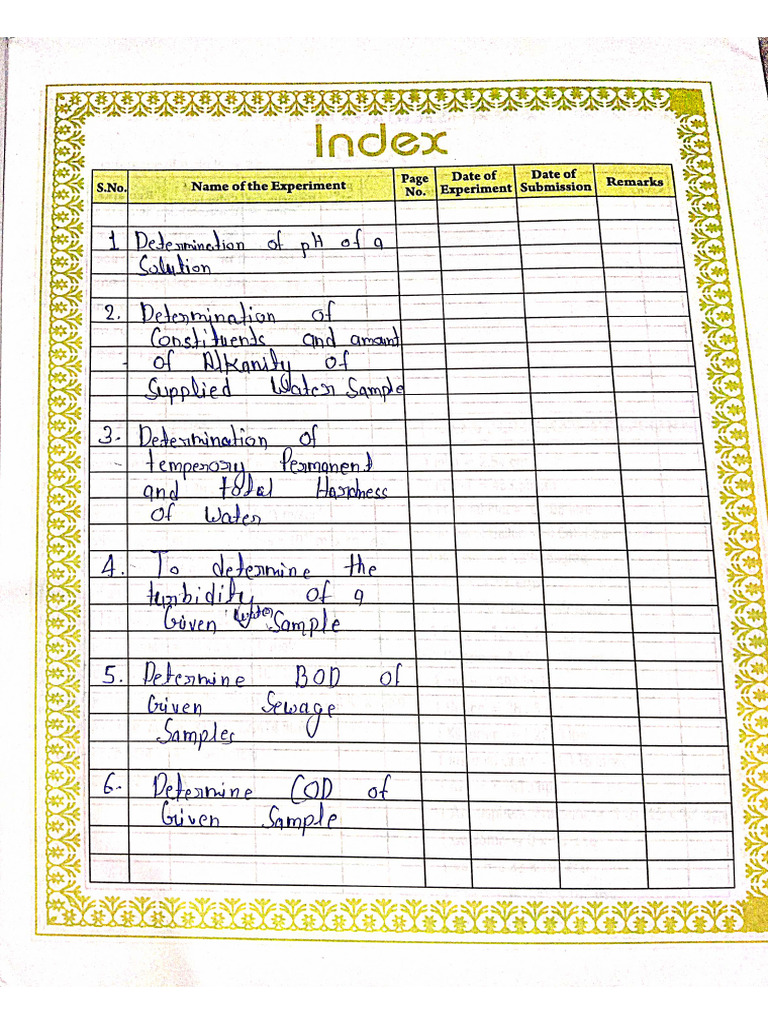 Index
S.No. Name of the Experiment Page No. Date of Experiment Date of Submission Remarks
1 Determination of pH of a
Solution
2. Determination of
Constituents and amount
of Alkanity of
Supplied Water Sample
3. Determination of
temperory Permanent
and total Hardness
of Water
4. To determine the
turbidity of a
Given water Sample
5. Determine BOD of
Given Sewage
Samples
6. Determine COD of
Given Sample